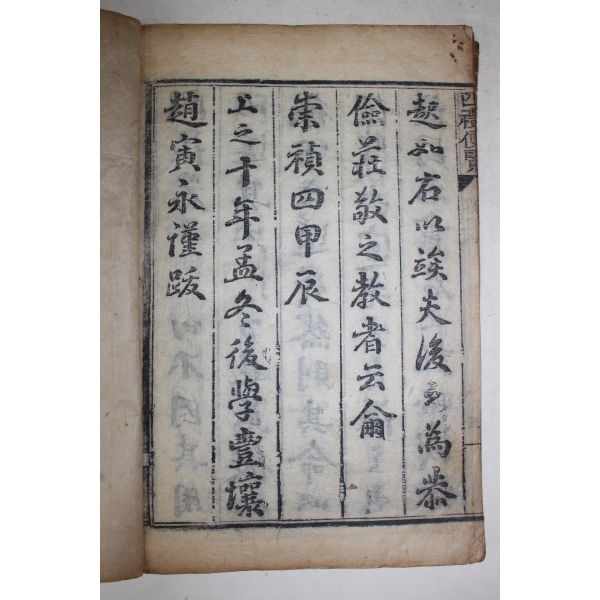 四禮便覽
起如右以竢夫後之為恭
儉莊敬之敎者云爾
崇禎四甲辰
上之十年孟冬後學豊壤
趙寅永謹跋